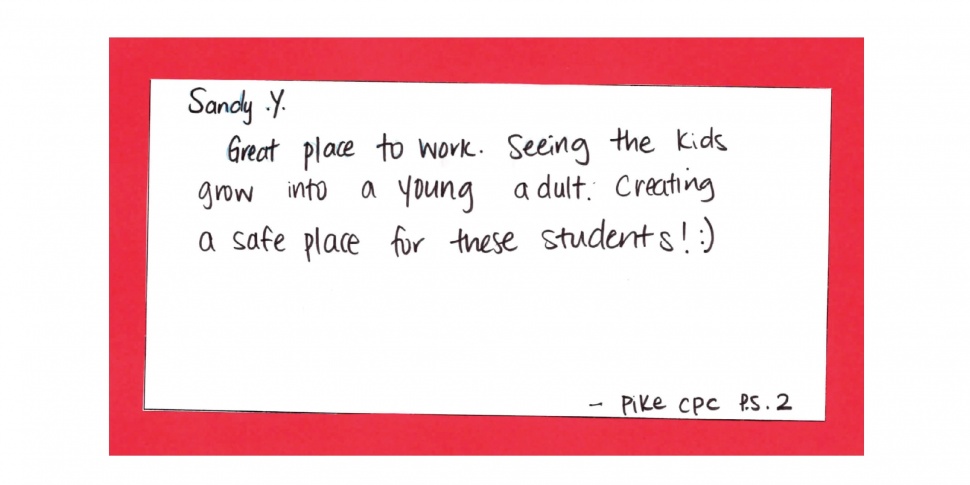 Sandy .Y.
Great place to work. Seeing the kids
grow into a young adult. Creating
a safe place for these students! :)
- Pike CPC P.S. 2